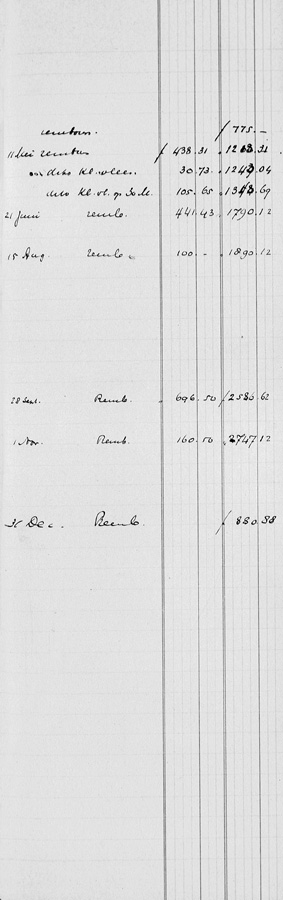 rembours. ƒ 775.–
11 Mei rembours ƒ 438.31 1213.31
dito Kl. 30.73 1243.04
dito Kl. vl. op 105.65 1348.69
21 Juni remb. 441.43 1790.12
15 Aug. remb. 100.– 1890.12
28 Sept. Remb. 696.50 ƒ 2586.62
1 Nov. Remb. 160.50 2747.12
31 Dec. Remb. ƒ 880.88